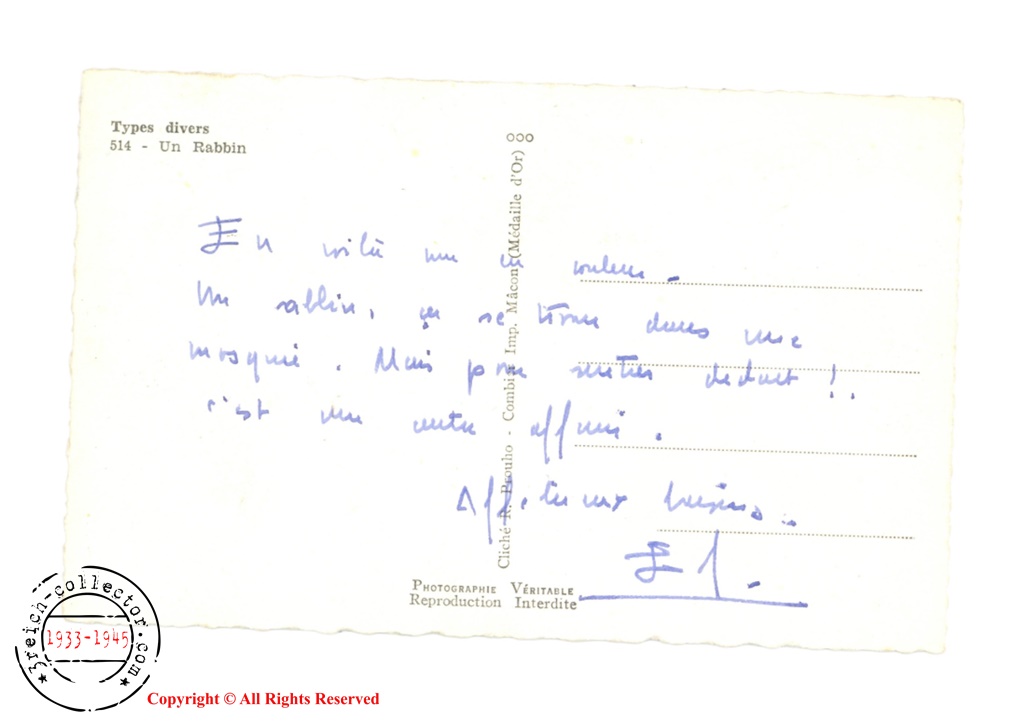 Types divers
514 - Un Rabbin
En voilà une en couleur -
Un rabbin, ça se trouve dans une
mosquée. Mais pour rentrer dedans !.
c'est une autre affaire.
Affectueux baisers.
Cliché R. Prouho - Combier Imp. Mâcon (Médaille d'Or) ooo
Photographie Véritable
Reproduction Interdite
3reich-collector.com
1933-1945
Copyright © All Rights Reserved